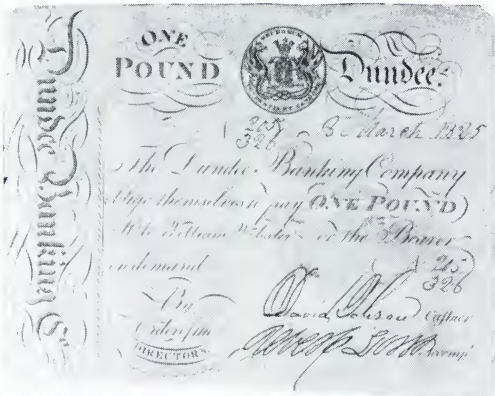 Dundee Banking Co.
ONE
POUND
Dundee.
265
326
8 March 1825
The Dundee Banking Company
oblige themselves to pay ONE POUND
to William Webster or the Bearer
on demand
265
326
By
Order of the
DIRECTORS
David Jobson Cashier
Accompt.